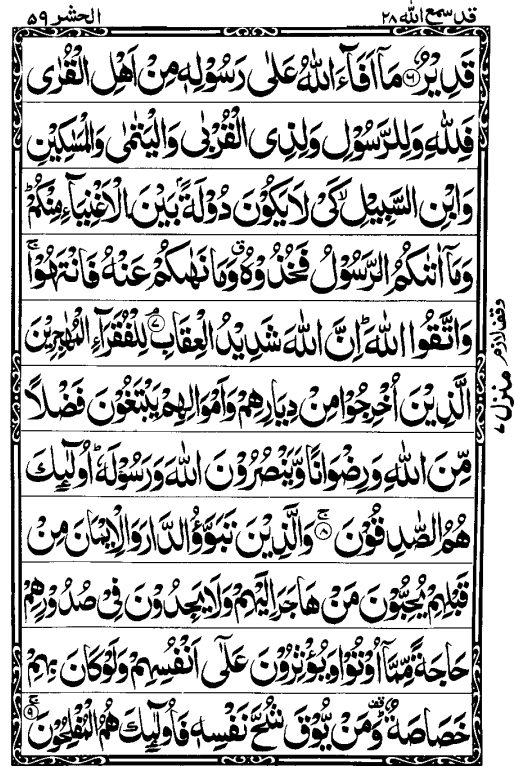 قد سمع الله ٢٨
الحشر ٥٩
قَدِيْرٌ ۝٦ مَاۤ اَفَآءَ اللّٰهُ عَلٰى رَسُوْلِهٖ مِنْ اَهْلِ الْقُرٰى
فَلِلّٰهِ وَلِلرَّسُوْلِ وَلِذِى الْقُرْبٰى وَالْيَتٰمٰى وَالْمَسٰكِيْنِ
وَابْنِ السَّبِيْلِ ۙ كَىْ لَا يَكُوْنَ دُوْلَةًۢ بَيْنَ الْاَغْنِيَآءِ مِنْكُمْ ؕ
وَمَاۤ اٰتٰىكُمُ الرَّسُوْلُ فَخُذُوْهُ ۗ وَمَا نَهٰىكُمْ عَنْهُ فَانْتَهُوْا ۚ
وَاتَّقُوا اللّٰهَ ؕ اِنَّ اللّٰهَ شَدِيْدُ الْعِقَابِ ۝٧ لِلْفُقَرَآءِ الْمُهٰجِرِيْنَ
الَّذِيْنَ اُخْرِجُوْا مِنْ دِيَارِهِمْ وَاَمْوَالِهِمْ يَبْتَغُوْنَ فَضْلًا
مِّنَ اللّٰهِ وَرِضْوَانًا وَّيَنْصُرُوْنَ اللّٰهَ وَرَسُوْلَهٗ ؕ اُولٰٓئِكَ
هُمُ الصّٰدِقُوْنَ ۝٨ۚ وَالَّذِيْنَ تَبَوَّؤُ الدَّارَ وَالْاِيْمَانَ مِنْ
قَبْلِهِمْ يُحِبُّوْنَ مَنْ هَاجَرَ اِلَيْهِمْ وَلَا يَجِدُوْنَ فِىْ صُدُوْرِهِمْ
حَاجَةً مِّمَّاۤ اُوْتُوْا وَيُؤْثِرُوْنَ عَلٰٓى اَنْفُسِهِمْ وَلَوْ كَانَ بِهِمْ
خَصَاصَةٌ ؕ۫ وَمَنْ يُّوْقَ شُحَّ نَفْسِهٖ فَاُولٰٓئِكَ هُمُ الْمُفْلِحُوْنَ ۝٩ۚ
وقف لازم
منزل ٧